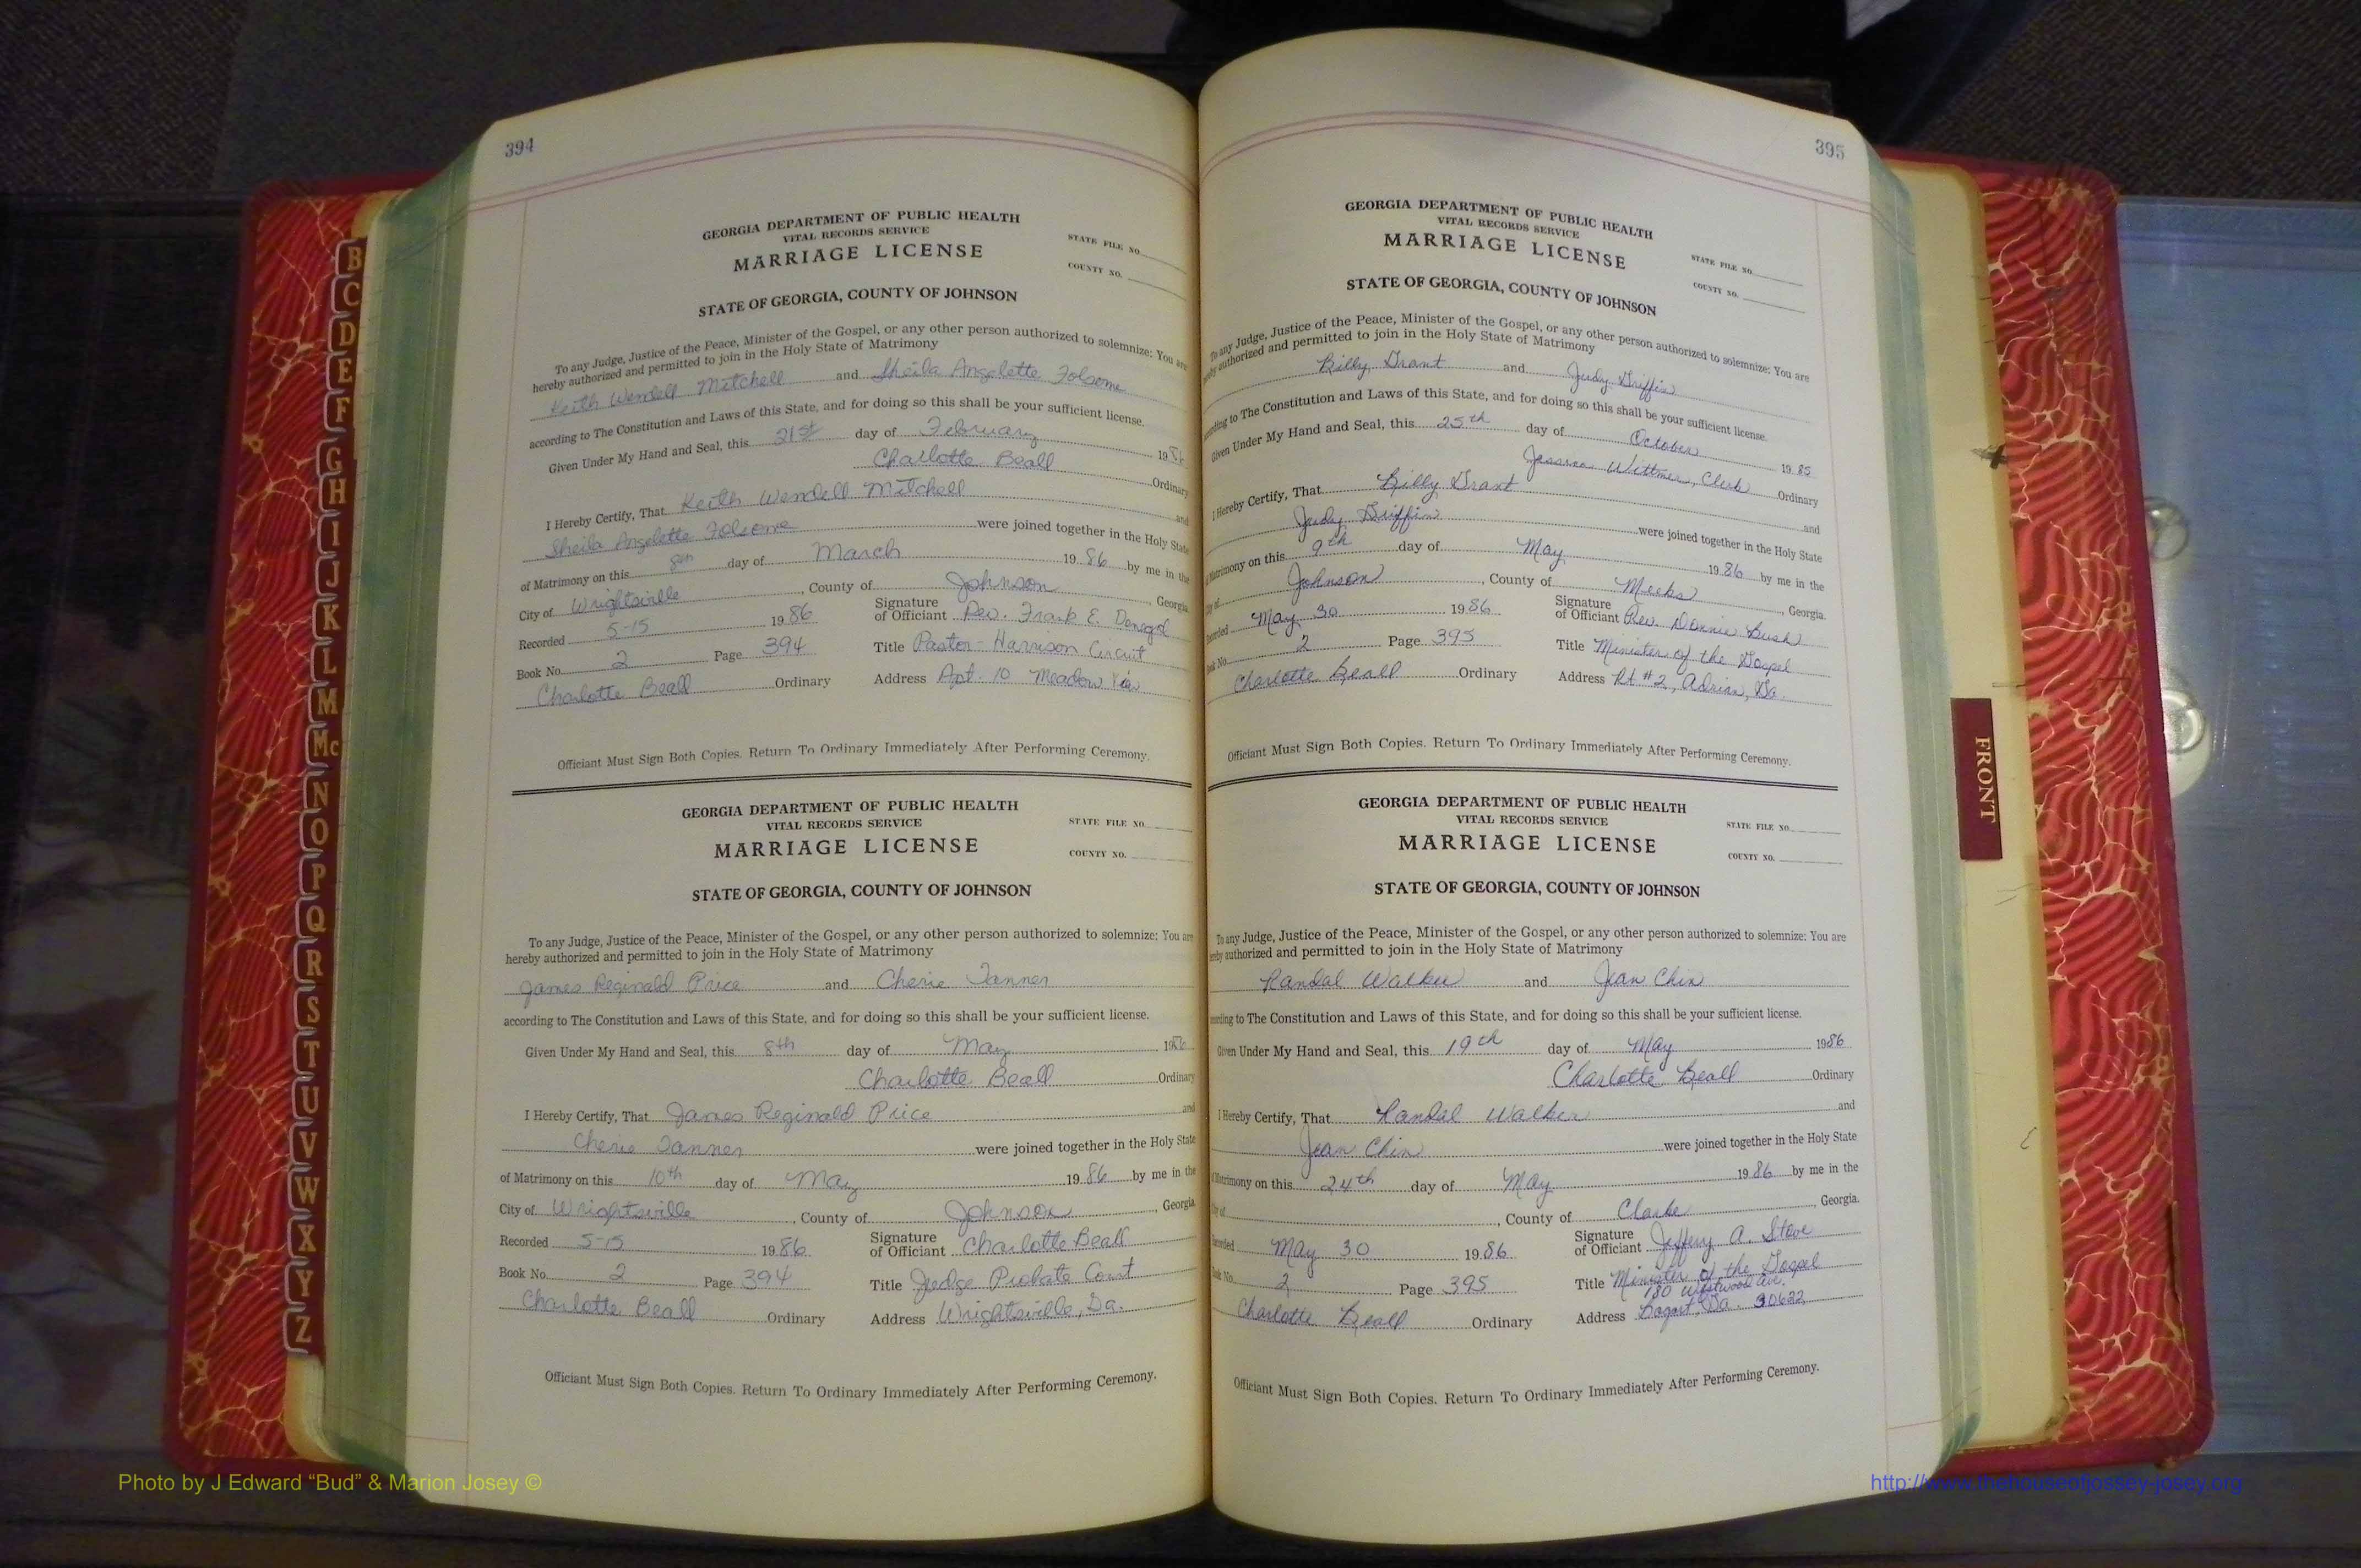 394
GEORGIA DEPARTMENT OF PUBLIC HEALTH
VITAL RECORDS SERVICE
MARRIAGE LICENSE
STATE FILE NO.
COUNTY NO.
STATE OF GEORGIA, COUNTY OF JOHNSON
To any Judge, Justice of the Peace, Minister of the Gospel, or any other person authorized to solemnize: You are
hereby authorized and permitted to join in the Holy State of Matrimony
Keith Wendell Mitchell and Sheila Angelette Folsome
according to The Constitution and Laws of this State, and for doing so this shall be your sufficient license.
Given Under My Hand and Seal, this 21st day of February 1986
Charlotte Beall Ordinary
I Hereby Certify, That Keith Wendell Mitchell and
Sheila Angelette Folsome were joined together in the Holy State
of Matrimony on this 8th day of March 1986 by me in the
City of Wrightsville, County of Johnson, Georgia
Recorded 5-15 1986 Signature of Officiant Rev. Frank E.
Book No. 2 Page 394 Title Pastor - Harrison Circuit
Charlotte Beall Ordinary Address Apt. 10 Meadow
Officiant Must Sign Both Copies. Return To Ordinary Immediately After Performing Ceremony.
GEORGIA DEPARTMENT OF PUBLIC HEALTH
VITAL RECORDS SERVICE
MARRIAGE LICENSE
STATE FILE NO.
COUNTY NO.
STATE OF GEORGIA, COUNTY OF JOHNSON
To any Judge, Justice of the Peace, Minister of the Gospel, or any other person authorized to solemnize: You are
hereby authorized and permitted to join in the Holy State of Matrimony
James Reginald Price and Cherie Tanner
according to The Constitution and Laws of this State, and for doing so this shall be your sufficient license.
Given Under My Hand and Seal, this 8th day of May 1986
Charlotte Beall Ordinary
I Hereby Certify, That James Reginald Price and
Cherie Tanner were joined together in the Holy State
of Matrimony on this 10th day of May 1986 by me in the
City of Wrightsville, County of Johnson, Georgia
Recorded 5-15 1986 Signature of Officiant Charlotte Beall
Book No. 2 Page 394 Title Judge Probate Court
Charlotte Beall Ordinary Address Wrightsville, Ga.
Officiant Must Sign Both Copies. Return To Ordinary Immediately After Performing Ceremony.
395
GEORGIA DEPARTMENT OF PUBLIC HEALTH
VITAL RECORDS SERVICE
MARRIAGE LICENSE
STATE FILE NO.
COUNTY NO.
STATE OF GEORGIA, COUNTY OF JOHNSON
To any Judge, Justice of the Peace, Minister of the Gospel, or any other person authorized to solemnize: You are
hereby authorized and permitted to join in the Holy State of Matrimony
Billy Grant and Judy Griffin
according to The Constitution and Laws of this State, and for doing so this shall be your sufficient license.
Given Under My Hand and Seal, this 25th day of October 1985
Jessica Wittmer, Clerk Ordinary
I Hereby Certify, That Billy Grant and
Judy Griffin were joined together in the Holy State
of Matrimony on this 9th day of May 1986 by me in the
City of Johnson, County of Meeks, Georgia.
Recorded May 30 1986 Signature of Officiant Rev. Donnie Bush
Book No. 2 Page 395 Title Minister of the Gospel
Charlotte Beall Ordinary Address Rt #2, Adrian, Ga.
Officiant Must Sign Both Copies. Return To Ordinary Immediately After Performing Ceremony.
GEORGIA DEPARTMENT OF PUBLIC HEALTH
VITAL RECORDS SERVICE
MARRIAGE LICENSE
STATE FILE NO.
COUNTY NO.
STATE OF GEORGIA, COUNTY OF JOHNSON
To any Judge, Justice of the Peace, Minister of the Gospel, or any other person authorized to solemnize: You are
hereby authorized and permitted to join in the Holy State of Matrimony
Randal Walker and Jean Chin
according to The Constitution and Laws of this State, and for doing so this shall be your sufficient license.
Given Under My Hand and Seal, this 19th day of May 1986
Charlotte Beall Ordinary
I Hereby Certify, That Randal Walker and
Jean Chin were joined together in the Holy State
of Matrimony on this 24th day of May 1986 by me in the
City of , County of Clarke, Georgia.
Recorded May 30 1986 Signature of Officiant Jeffery A. Stowe
Book No. 2 Page 395 Title Minister of the Gospel
180 Westwood Ave.
Charlotte Beall Ordinary Address Bogart, Ga. 30622
Officiant Must Sign Both Copies. Return To Ordinary Immediately After Performing Ceremony.
B
C
D
E
F
G
H
I
J
K
L
M
Mc
N
O
P
Q
R
S
T
U
V
W
X
Y
Z
FRONT
Photo by J Edward “Bud” & Marion Josey ©
http://www.thehouseofjossey-josey.org